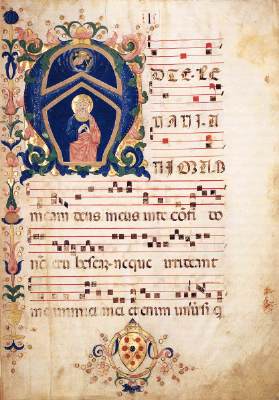 AD TE LE
VAVI A
NIMAM
meam deus meus in te cōfi do
nō eru bescaz neque irrideant
me inimici mei etenim universi q